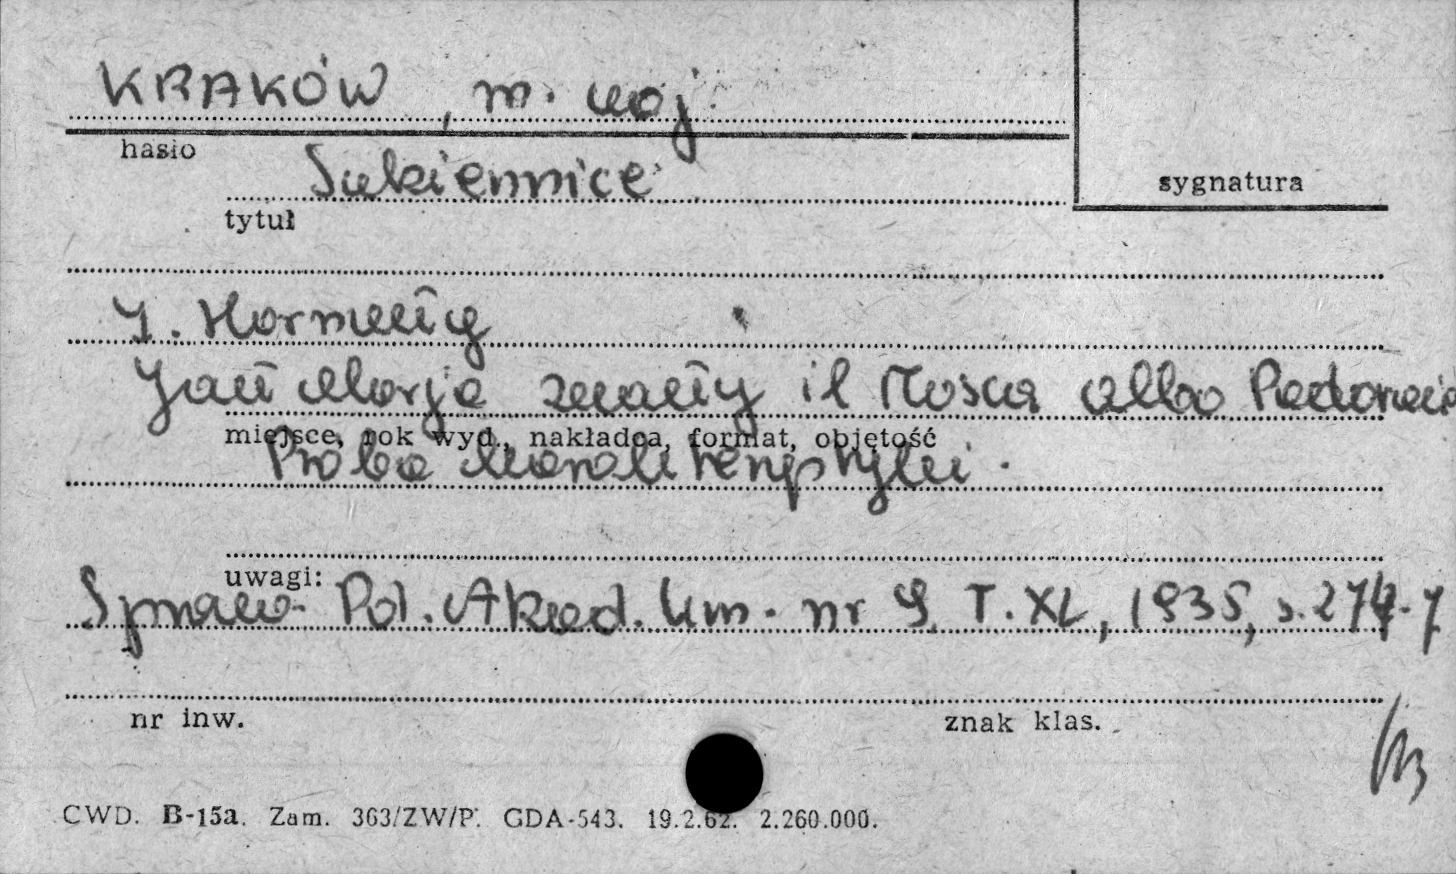 KRAKÓW, m. woj.
hasło
Sukiennice
sygnatura
tytuł
J. Hornung
Jan Maria znany il Mosca albo Padovano
miejsce, rok wyd., nakładca, format, objętość
Próba charakterystyki.
uwagi:
Sprawo. Pol. Akad. Um. nr 9 T. XL, 1935, s. 274-7
nr inw.
znak klas.
CWD. B-15a. Zam. 363/ZW/P. GDA-543. 19.2.62. 2.260.000.